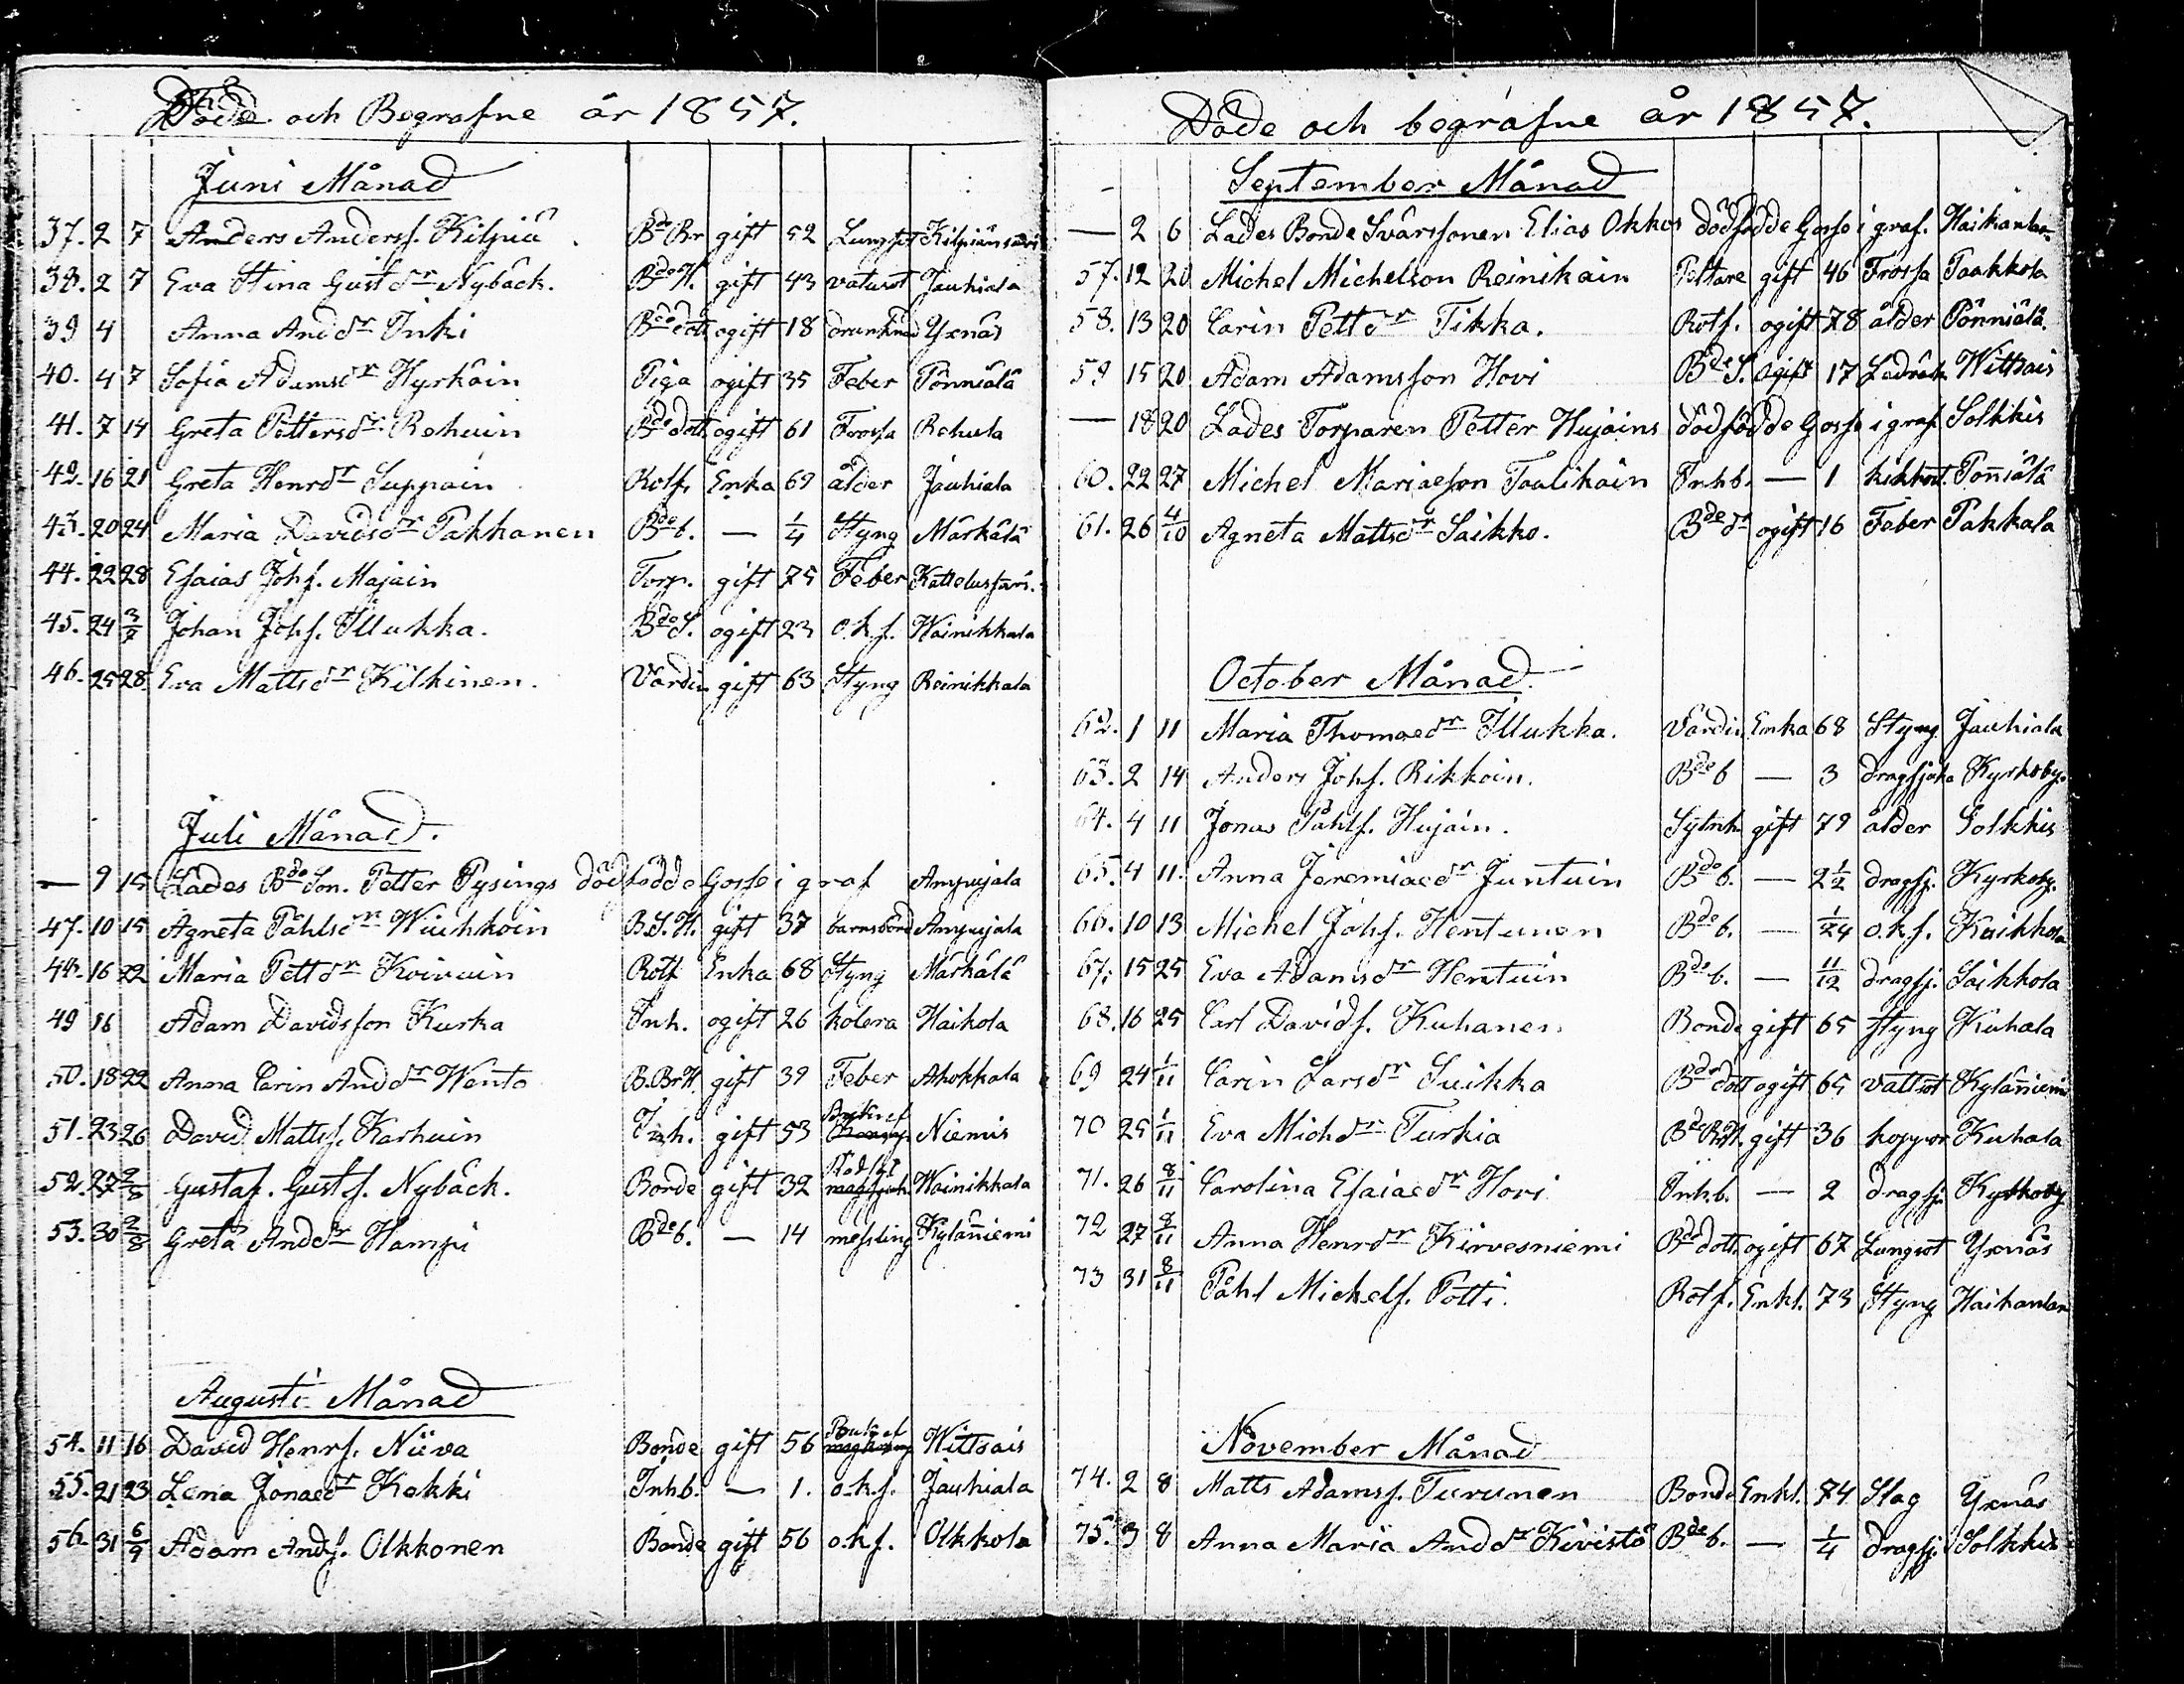 Döde och Begrafne år 1857.
Juni Månad
37. 2 7 Anders Andersf. Kilpiä Bde Br gift 52 Lungsot Kilpiänsaari
38. 2 7 Eva Stina Gustdr Nybäck. Bde H. gift 43 vatusot Jauhiala
39 4 Anna Anddr Inki Bde dott ogift 18 drunknad Yxnäs
40. 4 7 Sofia Adamsdr Hyrkäin Piga ogift 35 Feber Pönniälä
41. 7 14 Greta Pettersdr Rehuin Bde dott ogift 61 Frossa Rehula
42. 16 21 Greta Henrdr Suppain Rotf. Enka 69 ålder Jauhiala
43. 20 24 Maria Davidsdr Pakkanen Bde b. — 1/4 Styng Märkälä
44. 22 28 Esaias Johf. Majain Torp. gift 75 Feber Kattelussaari.
45. 24 3/7 Johan Johf. Illukka. Bde S. ogift 23 o.k.s. Wainikkala
46. 25 28. Eva Mattsdr Kilkinen. Värdin gift 63 Styng Reinikkala
Juli Månad.
— 9 15 Lades Bde Son. Petter Pysings dödfödde Gosse i graf Ampujala
47. 10 15 Agneta Påhlsdr Wiuhkoin B.S.H. gift 37 barnsbörd Ampujala
48. 16 22 Maria Pettdr Koivuin Rotf Enka 68 Styng Märkälä
49 16 Adam Davidsson Kurka Inh. ogift 26 kolera Haikola
50. 18 22 Anna Carin Anddr Wento B.BrH. gift 39 Feber Ahokkala
51. 23 26 David Mattsf. Karhuin Inh. gift 53 Niemis
52. 27 2/8 Gustaf. Gustf. Nybäck. Bonde gift 32 Wainikkala
53. 30 2/8 Greta Anddr Hampi Bde b. — 14 messling Kylänniemi
Augusti Månad
54. 11 16 David Henrf. Niiva Bonde gift 56 Wittsais
55. 21 23 Lena Jonaedr Kekki Inhb. — 1. o.k.s. Jauhiala
56. 31 6/9 Adam Andf. Olkkonen Bonde gift 56 o.k.s. Olkkola
Döde och begrafne år 1857.
September Månad
— 2 6 Lades Bonde Svärssonen Elias Okkos dödfödde Gosse i graf. Haikanlax
57. 12 20 Michel Michelson Reinikain Pottare gift 46 Frossa Paakkola
58. 13 20 Carin Pettdr Tikka. Rotf. ogift 78 ålder Pönniälä
59 15 20 Adam Adamsson Hovi Bde S. ogift 17 Wittsais
— 18 20 Lades Torparen Petter Hujains dödfödde Gosse i graf. Solkkis
60. 22 27 Michel Mariaeson Taalikain Inhb. — 1 kikhost Pon̄iälä
61. 26 4/10 Agneta Mattsdr Saikko. Bde dr ogift 16 Feber Pakkala
October Månad.
62. 1 11 Maria Thomaedr Illukka. Värdin Enka 68 Styng Jauhiala
63. 2 14 Anders Johf. Rikkoin. Bde b — 3 dragsjuka Kyrkoby.
64. 4 11 Jonas Påhlf. Hujain. Sytnh gift 79 ålder Solkkis
65. 4 11. Anna Jeremiaedr Juntuin Bde b. — 2 1/2 dragsj. Kyrkoby.
66. 10 13 Michel Johf. Hentunen Bde b. — 1/24 o.k.s. Kaikkola
67. 15 25 Eva Adamsdr Hentuin Bde b. — 11/12 dragsj. Saikkola
68. 16 25 Carl Davidf. Kuhanen Bonde gift 65 Styng Kuhala
69 24 1/11 Carin Larsdr Suikka Bde dott ogift 65 vattsot Kylänniemi
70 25 1/11 Eva Michdr Turkia Bde BrH. gift 36 koppor Kuhala
71. 26 8/11 Carolina Esaiaedr Hovi Inhb. — 2 dragsj. Kyrkoby
72 27 8/11 Anna Henrdr Kirvesniemi Bde dott. ogift 67 Lungsot Yxnäs
73 31 8/11 Påhl Michelf. Potti. Rotf. Enkl. 73 Styng Haikanlax
November Månad
74. 2 8 Matts Adamsf. Turunen Bonde Enkl. 74 Slag Yxnäs
75. 3 8 Anna Maria Anddr Kivistö Bde b. — 1/4 dragsj. Solkkis